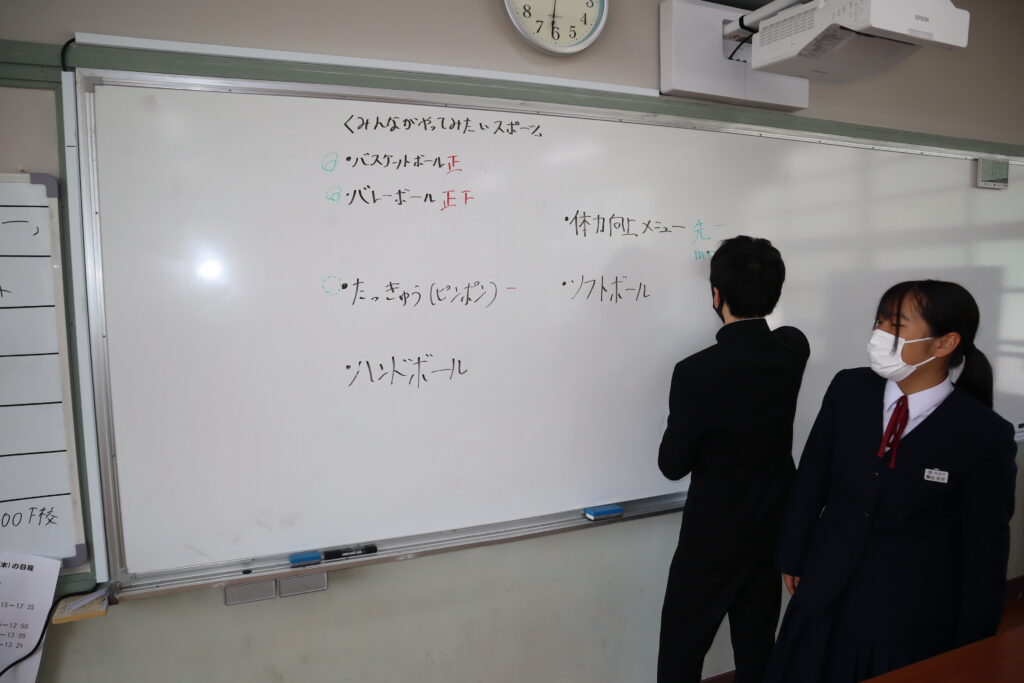 くみんながやってみたいスポーツ
・バスケットボール 正
・バレーボール 正下
・たっきゅう(ピンポン) 一
・ハンドボール
・体力向上メニュー 先一
・ソフトボール
8 7 6 5 4
EPSON
00下校
(木)の日程
15~12:35
~12:50
~13:05
~13:21